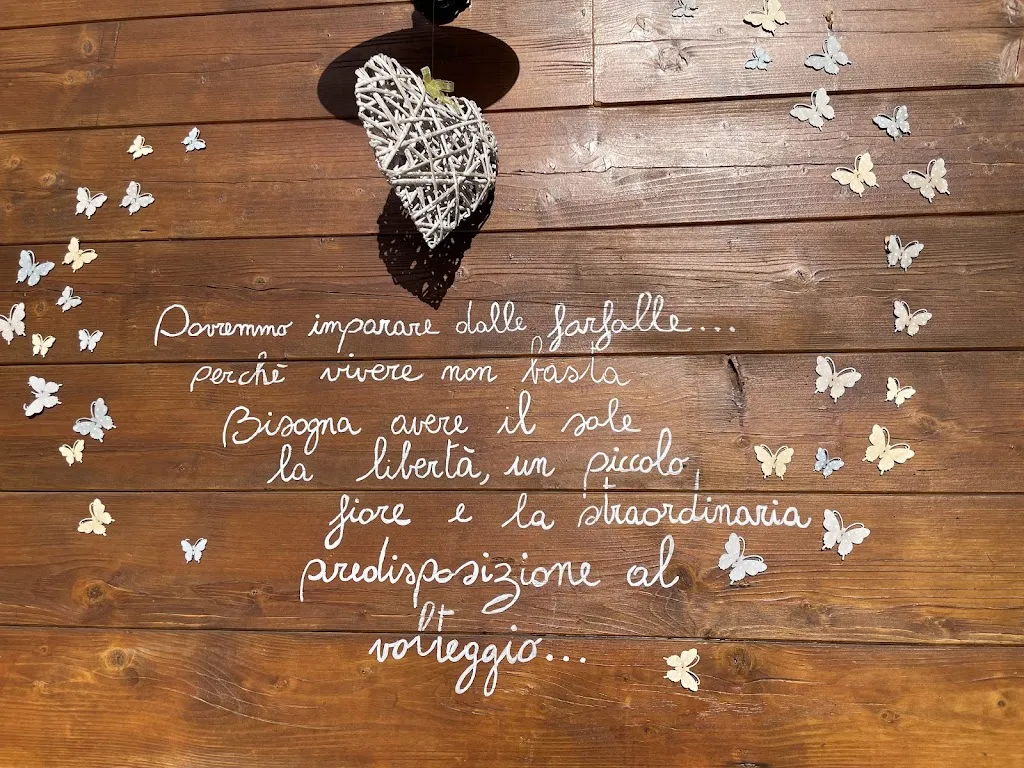 Dovremmo imparare dalle farfalle...
perchè vivere non basta
Bisogna avere il sole
la libertà, un piccolo
fiore e la straordinaria
predisposizione al
volteggio...